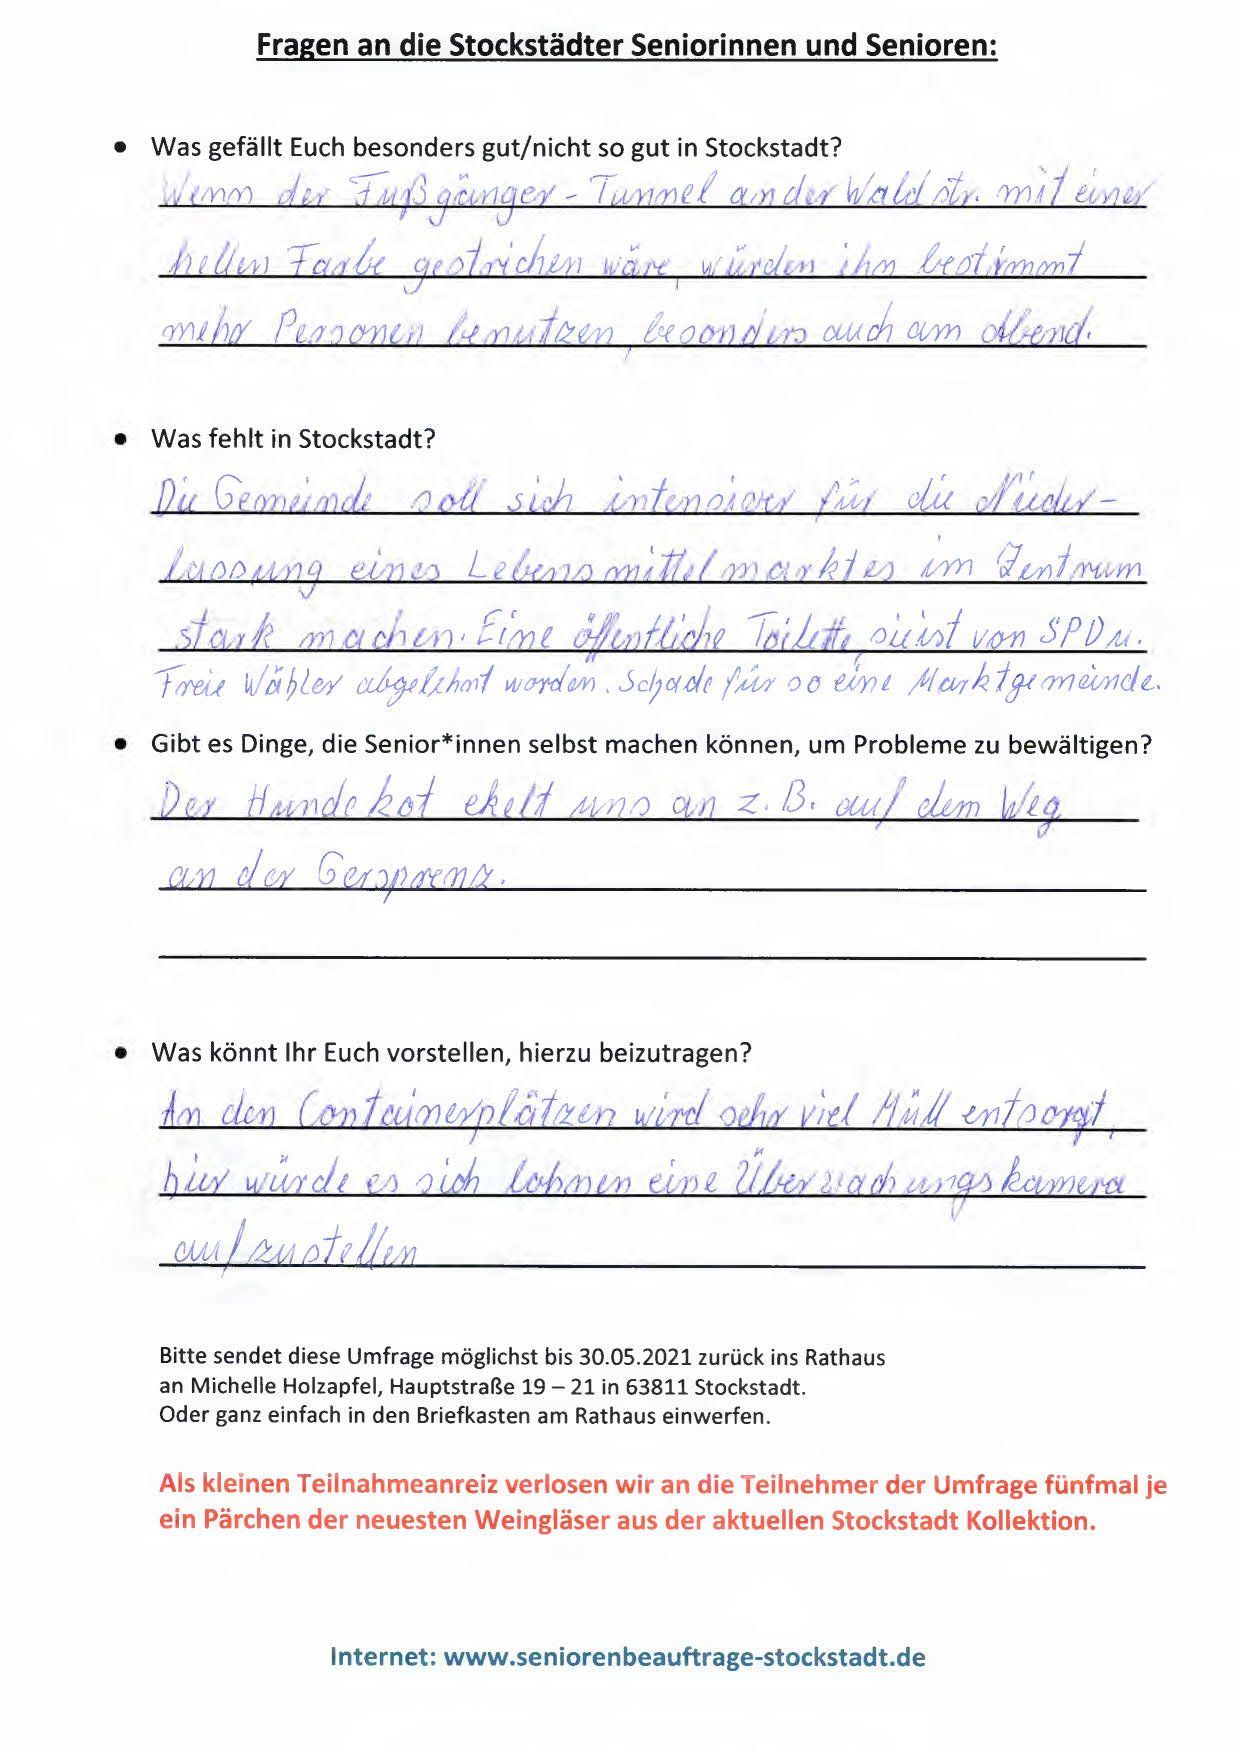 Fragen an die Stockstädter Seniorinnen und Senioren:
• Was gefällt Euch besonders gut/nicht so gut in Stockstadt?
Wenn der Fußgänger-Tunnel an der Waldstr. mit einer
hellen Farbe gestrichen wäre, würden ihn bestimmt
mehr Personen benutzen, besonders auch am Abend.
• Was fehlt in Stockstadt?
Die Gemeinde soll sich intensiver für die Nieder-
lassung eines Lebensmittelmarktes im Zentrum
stark machen. Eine öffentliche Toilette, sie ist von SPD u.
Freie Wähler abgelehnt worden. Schade für so eine Marktgemeinde.
• Gibt es Dinge, die Senior*innen selbst machen können, um Probleme zu bewältigen?
Der Hundekot ekelt uns an z. B. auf dem Weg
an der Gersprenz.
• Was könnt Ihr Euch vorstellen, hierzu beizutragen?
An den Containerplätzen wird sehr viel Müll entsorgt,
hier würde es sich lohnen eine Überwachungskamera
aufzustellen
Bitte sendet diese Umfrage möglichst bis 30.05.2021 zurück ins Rathaus
an Michelle Holzapfel, Hauptstraße 19 – 21 in 63811 Stockstadt.
Oder ganz einfach in den Briefkasten am Rathaus einwerfen.
Als kleinen Teilnahmeanreiz verlosen wir an die Teilnehmer der Umfrage fünfmal je
ein Pärchen der neuesten Weingläser aus der aktuellen Stockstadt Kollektion.
Internet: www.seniorenbeauftrage-stockstadt.de